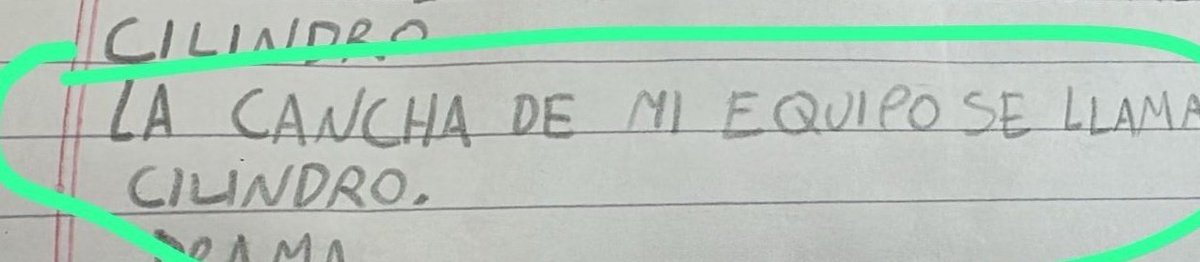 CILINDRO
LA CANCHA DE MI EQUIPO SE LLAMA
CILINDRO.
DRAMA